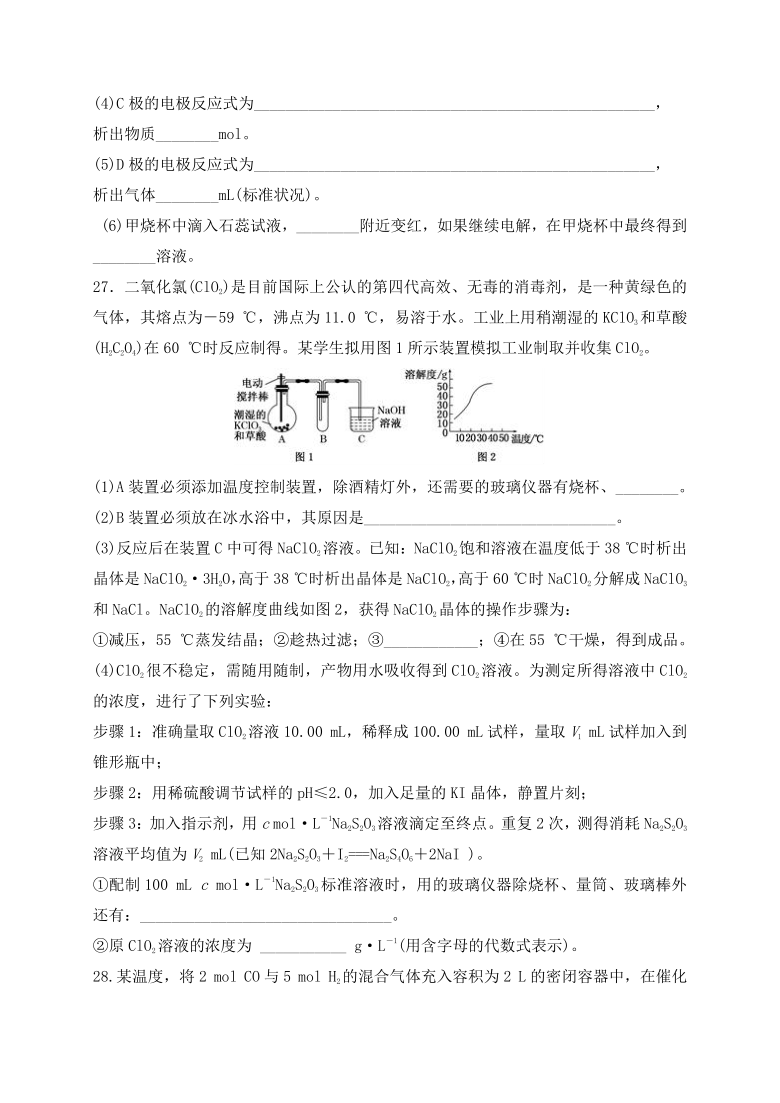 (4)C 极的电极反应式为___________________________________________________，
析出物质________mol。
(5)D 极的电极反应式为___________________________________________________，
析出气体________mL(标准状况)。
(6)甲烧杯中滴入石蕊试液，________附近变红，如果继续电解，在甲烧杯中最终得到
________溶液。
27．二氧化氯(ClO₂)是目前国际上公认的第四代高效、无毒的消毒剂，是一种黄绿色的
气体，其熔点为－59 ℃，沸点为11.0 ℃，易溶于水。工业上用稍潮湿的KClO₃和草酸
(H₂C₂O₄)在60 ℃时反应制得。某学生拟用图1所示装置模拟工业制取并收集ClO₂。
电动
搅拌棒
潮湿的
KClO₃
和草酸
A
B
C
NaOH
溶液
图1
溶解度/g
50
40
30
20
10
0
10 20 30 40 50 温度/℃
图2
(1)A装置必须添加温度控制装置，除酒精灯外，还需要的玻璃仪器有烧杯、________。
(2)B装置必须放在冰水浴中，其原因是________________________________。
(3)反应后在装置C中可得NaClO₂溶液。已知：NaClO₂饱和溶液在温度低于38 ℃时析出
晶体是NaClO₂·3H₂O,高于38 ℃时析出晶体是NaClO₂,高于60 ℃时NaClO₂分解成NaClO₃
和NaCl。NaClO₂的溶解度曲线如图2，获得NaClO₂晶体的操作步骤为：
①减压，55 ℃蒸发结晶；②趁热过滤；③____________；④在55 ℃干燥，得到成品。
(4)ClO₂很不稳定，需随用随制，产物用水吸收得到ClO₂溶液。为测定所得溶液中ClO₂
的浓度，进行了下列实验：
步骤1：准确量取ClO₂溶液10.00 mL，稀释成100.00 mL试样，量取V₁ mL试样加入到
锥形瓶中；
步骤2：用稀硫酸调节试样的pH≤2.0，加入足量的KI晶体，静置片刻；
步骤3：加入指示剂，用c mol·L⁻¹Na₂S₂O₃溶液滴定至终点。重复2次，测得消耗Na₂S₂O₃
溶液平均值为V₂ mL(已知2Na₂S₂O₃＋I₂===Na₂S₄O₆＋2NaI )。
①配制100 mL c mol·L⁻¹Na₂S₂O₃标准溶液时，用的玻璃仪器除烧杯、量筒、玻璃棒外
还有：________________________________。
②原ClO₂溶液的浓度为 ___________ g·L⁻¹(用含字母的代数式表示)。
28.某温度，将2 mol CO与5 mol H₂的混合气体充入容积为2 L的密闭容器中，在催化